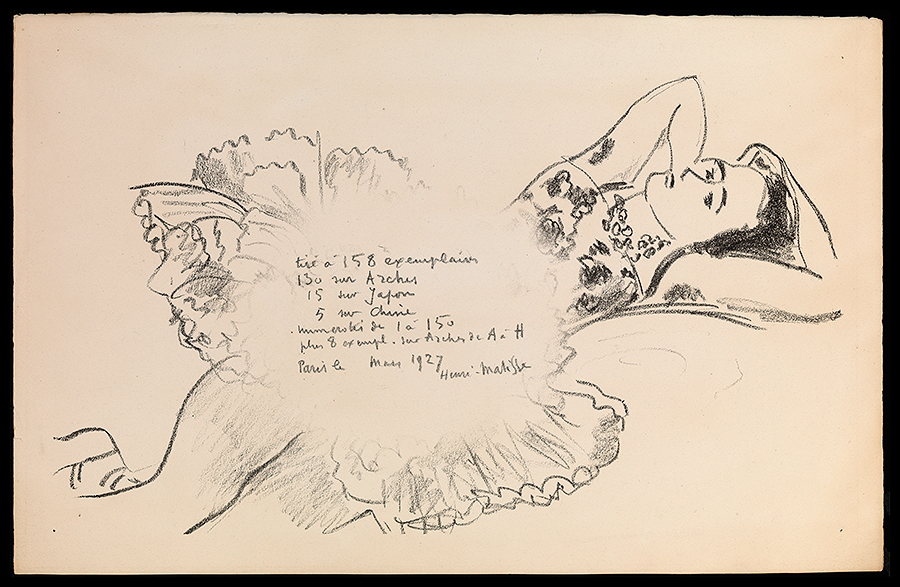 tiré à 158 exemplaires
130 sur Arches
15 sur Japon
5 sur Chine
numerotés de 1 à 150
plus 8 exempl. sur Arches de A à H
Paris le Mars 1927
Henri-Matisse